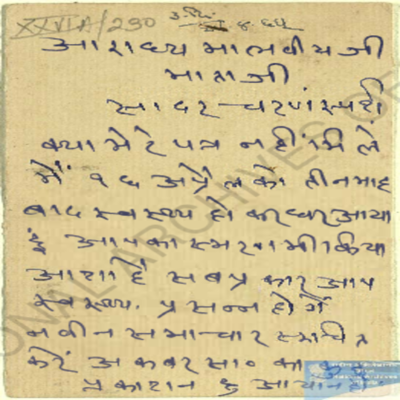 XXVI A/290
आराध्य मालवीय जी
माता जी
सादर चरण स्पर्श
क्या मेरे पत्र नहीं मिले
मैं १६ अप्रैल को तीन माह
बाद स्वस्थ्य हो कर घर आया
हूँ आपका स्मरण भी किया
आशा है सब प्रकार आप
स्वस्थ्य, प्रसन्न होंगे
नवीन समाचार
करें अकबर सा० का
प्रकाशन